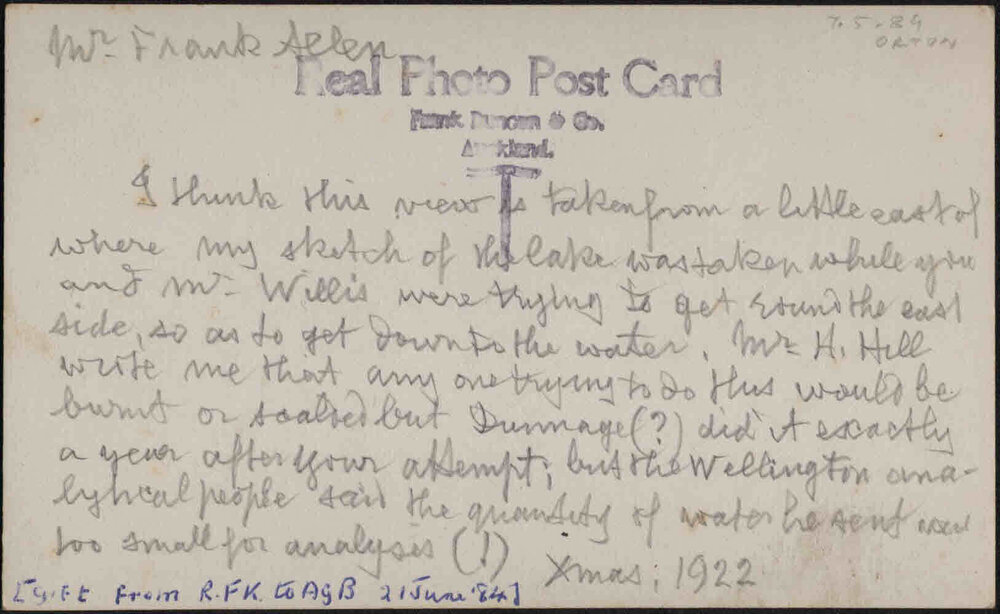 7.5.84
ORTON
Mr. Frank Allen
Real Photo Post Card
Frank Duncan & Co.
Auckland.
I think this view is taken from a little east of
where my sketch of the lake was taken while you
and Mr. Willis were trying to get round the east
side, so as to get down to the water. Mr. H. Hill
wrote me that any one trying to do this would be
burnt or scalded but Dunnage(?) did it exactly
a year after your attempt; but the Wellington ana-
lytical people said the quantity of water he sent was
too small for analysis (!)
Xmas; 1922
[Gift from R.F.K. to AGB 21 June '84]